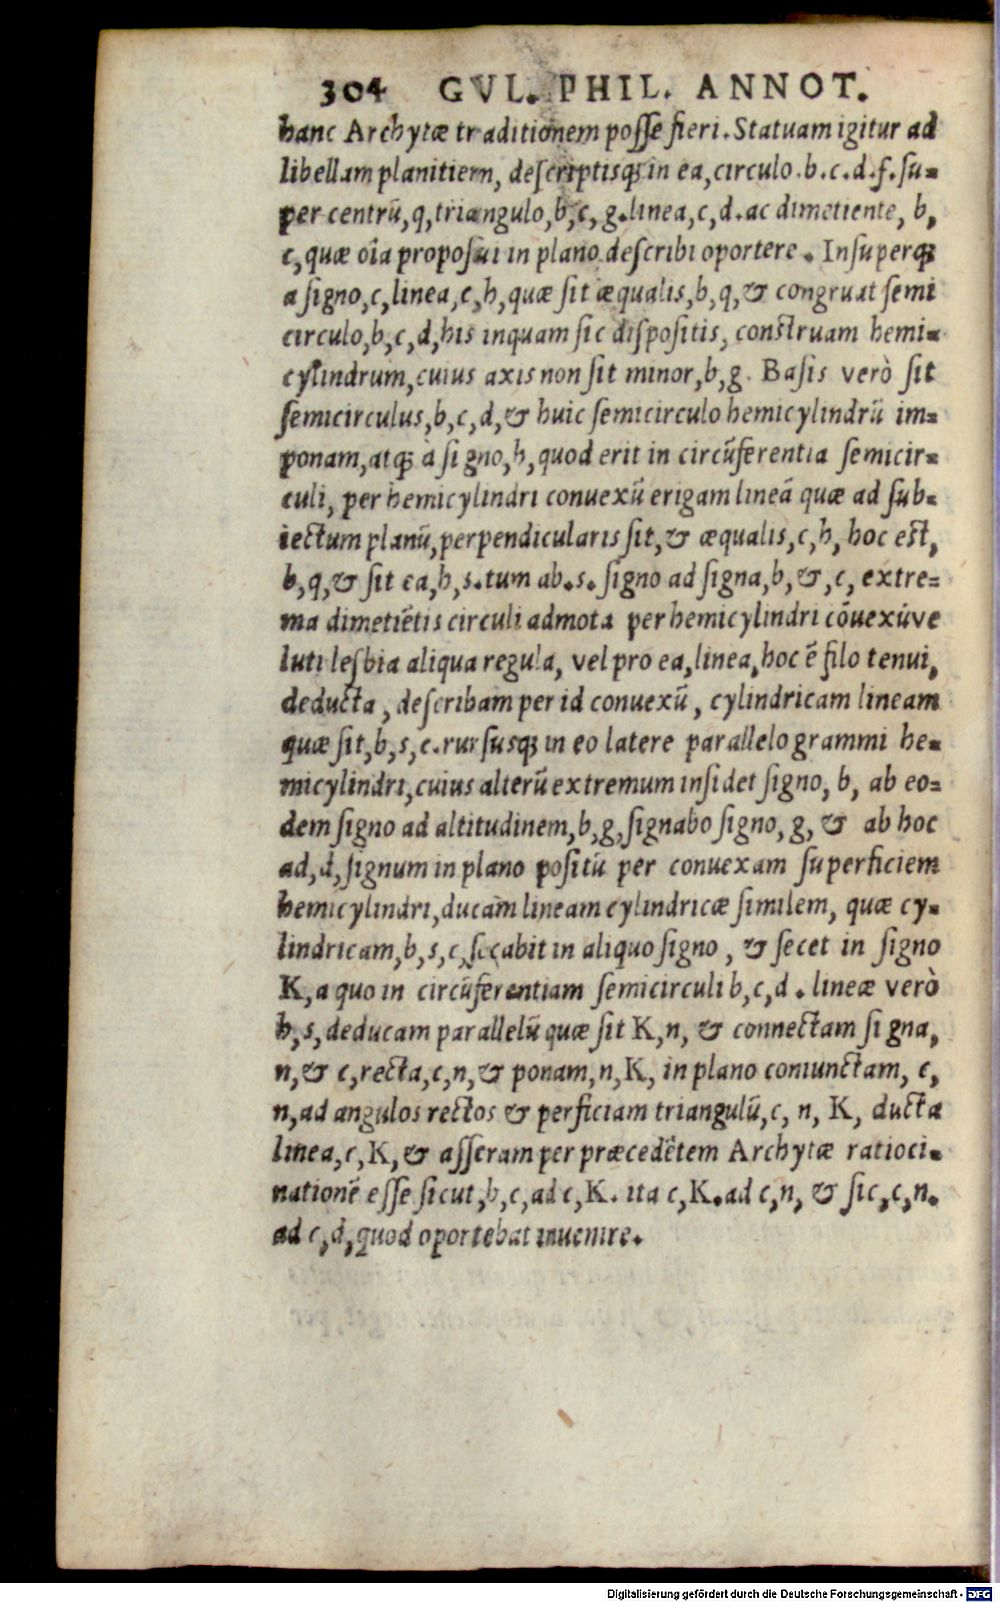 304 GVL. PHIL. ANNOT.
hanc Archytæ traditionem posse fieri. Statuam igitur ad
libellam planitiem, descriptisq; in ea, circulo. b. c. d. f. su-
per centrū, q, triangulo, b, c, g. linea, c, d. ac dimetiente, b,
c, quæ oīa proposui in plano describi oportere. Insuperq;
a signo, c, linea, c, h, quæ sit æqualis, b, q, & congruat semi
circulo, b, c, d, his inquam sic dispositis, construam hemi-
cylindrum, cuius axis non sit minor, b, g. Basis verò sit
semicirculus, b, c, d, & huic semicirculo hemicylindrū im-
ponam, atq; à signo, h, quod erit in circūferentia semicir-
culi, per hemicylindri conuexū erigam lineā quæ ad sub-
iectum planū, perpendicularis sit, & æqualis, c, h, hoc est,
b, q, & sit ea, h, s. tum ab. s. signo ad signa, b, &, c, extre-
ma dimetiētis circuli admota per hemicylindri cōuexū ve
luti lesbia aliqua regula, vel pro ea, linea, hoc ē filo tenui,
deducta, describam per id conuexū, cylindricam lineam
quæ sit, b, s, c. rursusq; in eo latere parallelogrammi he-
micylindri, cuius alterū extremum insidet signo, b, ab eo-
dem signo ad altitudinem, b, g, signabo signo, g, & ab hoc
ad, d, signum in plano positū per conuexam superficiem
hemicylindri, ducam lineam cylindricæ similem, quæ cy-
lindricam, b, s, c, secabit in aliquo signo, & secet in signo
K, a quo in circūferentiam semicirculi b, c, d. lineæ verò
h, s, deducam parallelū quæ sit K, n, & connectam signa,
n, & c, recta, c, n, & ponam, n, K, in plano coniunctam, c,
n, ad angulos rectos & perficiam triangulū, c, n, K, ducta
linea, c, K, & asseram per præcedētem Archytæ ratioci-
nationē esse sicut, b, c, ad c, K. ita c, K. ad c, n, & sic, c, n.
ad c, d, quod oportebat inuenire.
Digitalisierung gefördert durch die Deutsche Forschungsgemeinschaft - DFG